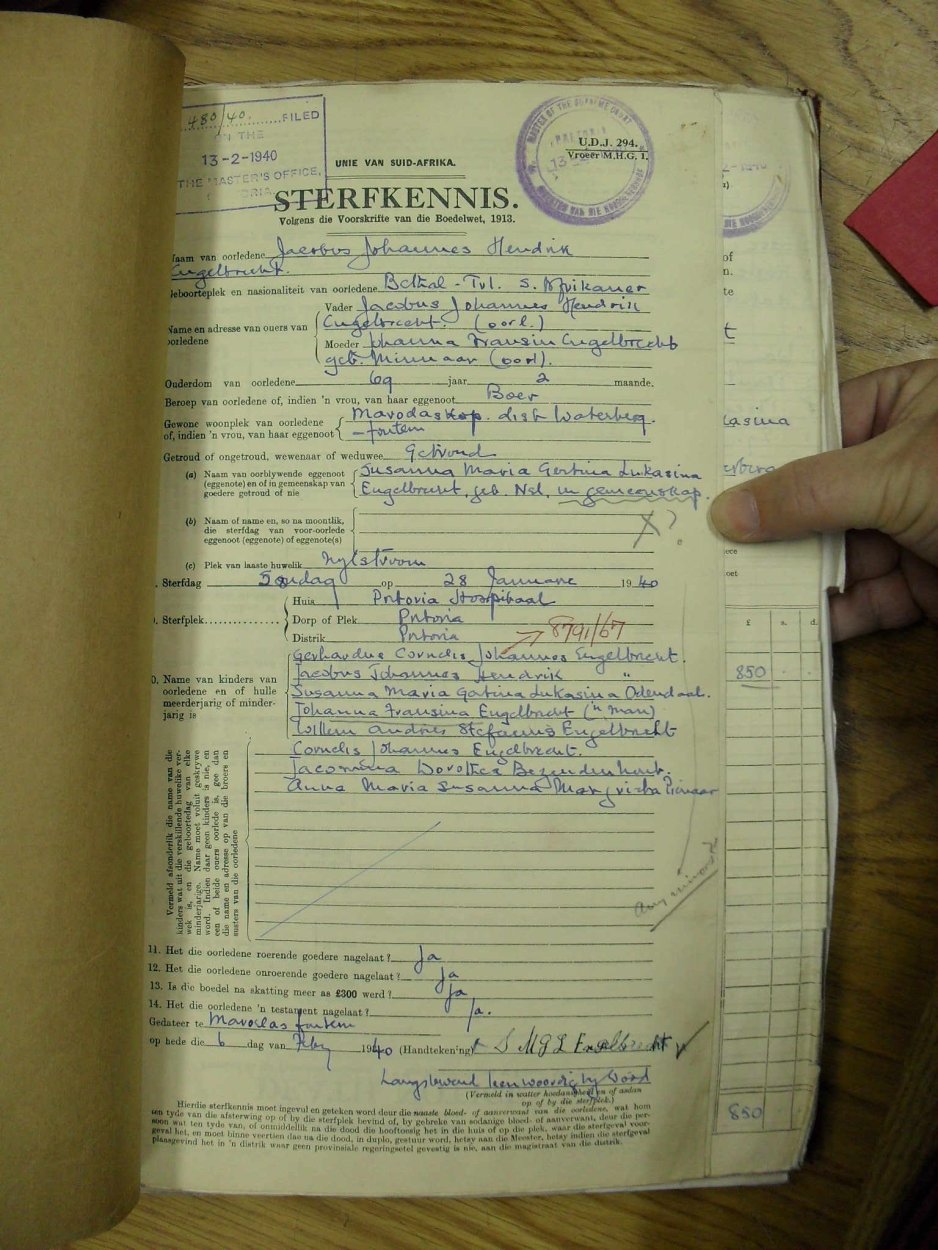 480/40. FILED
ON THE
13-2-1940
THE MASTER'S OFFICE,
MASTER OF THE SUPREME COURT
PRETORIA
U.D.J. 294.
Vroeër M.H.G. 1.
UNIE VAN SUID-AFRIKA.
STERFKENNIS.
Volgens die Voorskrifte van die Boedelwet, 1913.
Naam van oorledene Jacobus Johannes Hendrik
Engelbrecht.
Geboorteplek en nasionaliteit van oorledene Bethal - Tvl. S. Afrikaner
Name en adresse van ouers van oorledene
Vader Jacobus Johannes Hendrik
Engelbrecht. (oorl.)
Moeder Johanna Fransin Engelbrecht
geb. Minnaar (oorl).
Ouderdom van oorledene 69 jaar 2 maande.
Beroep van oorledene of, indien 'n vrou, van haar eggenoot Boer
Gewone woonplek van oorledene
of, indien 'n vrou, van haar eggenoot
dist Waterberg.
-fontein
Getroud of ongetroud, wewenaar of weduwee Getroud
(a) Naam van oorblywende eggenoot
(eggenote) en of in gemeenskap van
goedere getroud of nie
Susanna Maria Gertina Lukasina
Engelbrecht, geb. Nel, in gemeenskap.
(b) Naam of name en, so na moontlik,
die sterfdag van voor-oorlede
eggenoot (eggenote) of eggenote(s)
X?
(c) Plek van laaste huwelik Nylstroom
. Sterfdag Sondag op 28 Januarie 1940
. Sterfplek
Huis Pretoria Hospitaal
Dorp of Plek Pretoria
Distrik Pretoria
8791/67
0. Name van kinders van
oorledene en of hulle
meerderjarig of minder-
jarig is
Gerhardus Cornelis Johannes Engelbrecht.
Jacobus Johannes Hendrik "
Susanna Maria Gertina Lukasina Odendaal.
Johanna Fransina Engelbrecht ('n man)
Willem Andries Stefanus Engelbrecht
Cornelis Johannes Engelbrecht.
Jacomina Dorothea Bezuidenhout.
Anna Maria Susanna Margrieta Pienaar
Vermeld afsonderlik die name van die
kinders wat uit die verskillende huwelike ver-
wek is, en die geboortedag van elke
minderjarige. Name moet voluit geskrywe
word. Indien daar geen kinders is nie, en
een of beide ouers oorlede is, gee dan
die name en adresse op van die broers en
susters van die oorledene
Any minors?
11. Het die oorledene roerende goedere nagelaat? Ja
12. Het die oorledene onroerende goedere nagelaat? Ja
13. Is die boedel na skatting meer as £300 werd? Ja
14. Het die oorledene 'n testament nagelaat? Ja.
Gedateer te fontein
op hede die 6 dag van Feby 1940 (Handtekening) S M G L Engelbrecht
Langslewend teenwoordig by dood
(Vermeld in watter hoedanigheid en of asdan
op of by die sterfplek.)
Hierdie sterfkennis moet ingevul en geteken word deur die naaste bloed- of aanverwant van die oorledene, wat hom
ten tyde van die afsterwing op of by die sterfplek bevind of, by gebreke van sodanige bloed- of aanverwant, deur die per-
soon wat ten tyde van, of onmiddellik na die dood die hooftoesig het in die huis of op die plek, waar die sterfgeval voor-
geval het, en moet binne veertien dae na die dood, in duplo, gestuur word, hetsy aan die Meester, hetsy indien die sterfgeval
plaasgevind het in 'n distrik waar geen provinsiale regeringsetel gevestig is nie, aan die magistraat van die distrik.
£ s. d.
850
850